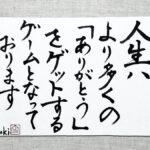 人生八
より多くの
「ありがとう」
をゲットする
ゲームとなって
おります